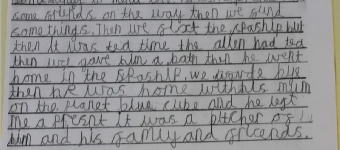 some friends on the way then we fund
some things. Then we start the spashlp but
then it was ted time the allen had ted
then we gave him a bath then he went
home in the spashlp. we
then he was home withhis mum
on the planet blue cube and he left
me a present it was a pitcher of
him and his family and friends.